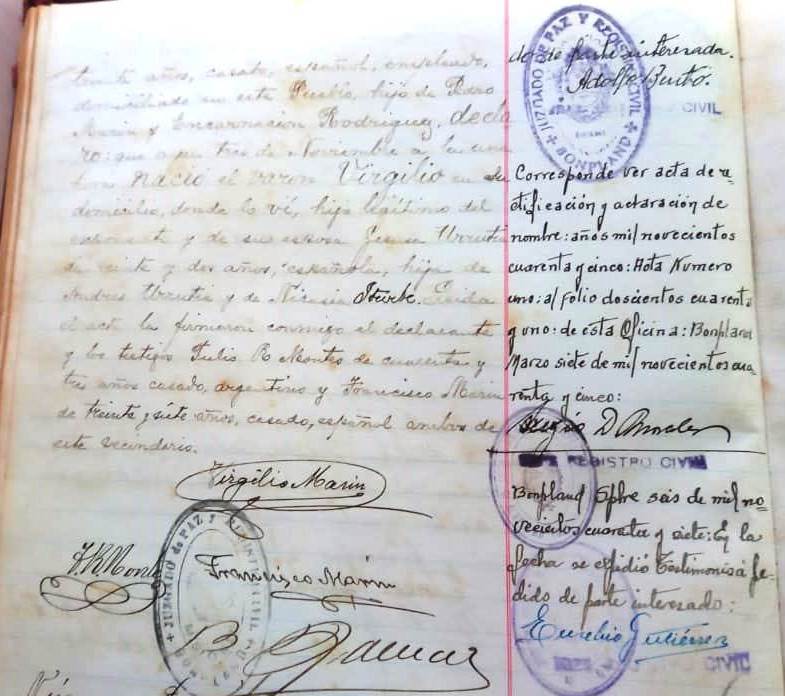 treinta años, casado, español, empleado,
domiciliado en este Pueblo, hijo de Pedro
Marin y Encarnación Rodriguez, decla
ro: que a por tres de Noviembre a la una
hora nació el varon Virgilio en su
domicilio, donde lo ví, hijo legítimo del
exponente y de su esposa Jesusa Urrutia
de veinte y dos años, española, hija de
Andres Urrutia y de Nicasia Iturbe. Leida
el acta la firmaron conmigo el declarante
y los testigos Julio R Montes de cuarenta y
tres años casado, argentino y Francisco Marin
de treinta y siete años, casado, español ambos de
este vecindario.
Virgilio Marin
J.R.Montes
Francisco Marin
JUZGADO de PAZ Y REGISTRO CIVIL
do de parte interesada.
Adolfo Burto.
JUZGADO DE PAZ Y REGISTRO CIVIL
BONPLAND
CIVIL
Corresponde ver acta de re
ctificación y aclaración de
nombre: años mil novecientos
cuarenta y cinco: Acta Numero
uno: al folio doscientos cuarenta
y uno: de esta Oficina: Bonpland
Marzo siete de mil novecientos cua
renta y cinco:
REGISTRO CIVIL
Bonpland Spbre seis de mil no
vecientos cuarenta y siete: En la
fecha se expidió testimonio a pe
dido de parte interesado:
Eusebio Gutiérrez
CIVIL